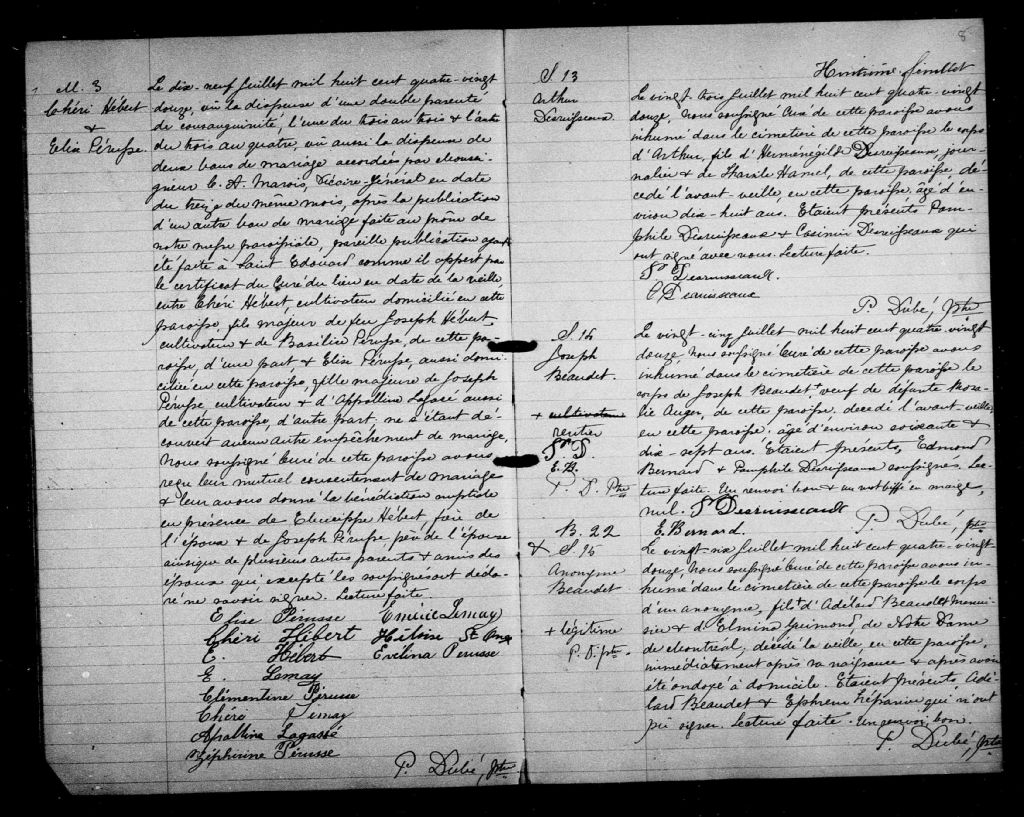 M. 3
Chéri Hébert
+
Elise Pérusse.
Le dix-neuf Juillet mil huit cent quatre-vingt
douze, vu la dispense d'une double parenté
de consanguinité, l'une du trois au trois & l'autre
du trois au quatre, vu aussi la dispense de
deux bans de mariage accordées par Monsei-
gneur C. A. Marois, Vicaire-Général en date
du treize du même mois, après la publication
d'un autre ban de mariage faite au prône de
notre messe paroissiale, pareille publication ayant
été faite à Saint Edouard comme il appert par
le certificat du Curé du lieu en date de la veille,
entre Chéri Hébert cultivateur domicilié en cette
paroisse, fils majeur de feu Joseph Hébert,
cultivateur & de Basilice Pérusse, de cette pa-
roisse, d'une part & Elise Pérusse, aussi domi-
ciliée en cette paroisse, fille majeure de Joseph
Pérusse, cultivateur & d'Appolline Lagacé aussi
de cette paroisse, d'autre part. ne s'étant dé-
couvert aucun autre empêchement de mariage,
Nous soussigné Curé de cette paroisse avons
reçu leur mutuel consentement de mariage
& leur avons donné la bénédiction nuptiale
en présence de Eleucippe Hébert frère de
l'époux & de Joseph Pérusse père de l'épouse
ainsique de plusieurs autres parents & amis des
époux qui excepté les soussignés ont décla-
ré ne savoir signer. Lecture faite
Elise Pérusse Emérie Lemay
Chéri Hébert Héloise St Onge
E. Hébert Evélina Perusse
E. Lemay
Clémentine Pérusse
Chéro Lemay
Apolline Lagassé
Zéphirine Pérusse
P. Dubé, Ptre
8
Huitième feuillet
S 13
Arthur
Desruisseaux.
Le vingt-trois Juillet mil huit cent quatre-vingt
douze, Nous soussigné Curé de cette paroisse avons
inhumé dans le cimetière de cette paroisse le corps
d'Arthur, fils d'Herménégilde Desruisseaux, jour-
nalier & de Tharsile Hamel, de cette paroisse, dé-
cédé l'avant-veille, en cette paroisse. âgé d'en-
viron dix-huit ans. Etaient présents Pam-
phile Desruisseaux & Casimir Desruisseaux qui
ont signé avec nous. Lecture faite.
Pr Desruisseault.
C Desruisseaux
P. Dubé, Ptre
S. 14
Joseph
Beaudet.
+ cultivateur
rentier
Pr D.
E. B.
P. D. Ptre
Le vingt-cinq Juillet mil huit cent quatre-vingt
douze Nous soussigné Curé de cette paroisse avons
inhumé dans le cimetière de cette paroisse le
corps de Joseph Beaudet + veuf de défunte Rosa-
lie Auger, de cette paroisse, décédé l'avant-veille,
en cette paroisse. âgé d'environ soixante &
dix-sept ans. Etaient présents, Edmond
Bernard & Pamphile Desruisseaux soussignés. Lec-
ture faite. Un renvoi bon & un mot biffé en marge,
nul. Pr Desruisseault
E. Bernard. P. Dubé, Ptre
B. 22
& S. 16
Anonyme
Beaudet
+ légitime
P. D. ptre
Le vingt-six Juillet mil huit cent quatre-vingt
douze, Nous soussigné Curé de cette paroisse avons in-
humé dans le cimetière de cette paroisse le corps
d'un anonyme, fils + d'Adélard Beaudet menui-
sier & d'Elmina Guimond, de Notre Dame
de Montréal, décédé la veille, en cette paroisse,
immédiatement après sa naissance & après avoir
été ondoyé à domicile. Etaient présents Adé-
lard Beaudet & Ephrem Lépanier qui n'ont
pu signer. Lecture faite. Un renvoi, bon.
P. Dubé, Ptre